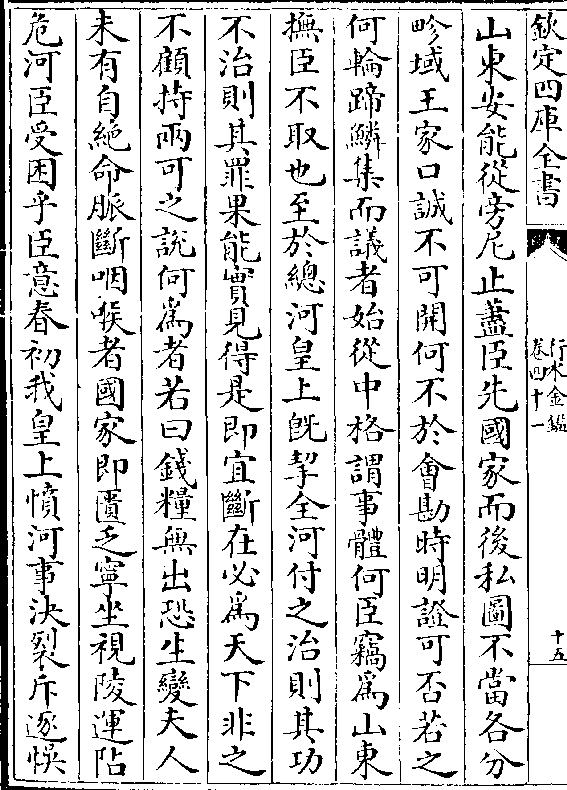 欽定四庫全書
行水金鑑
卷四十一
十五
山東安能從旁尼止蓋臣先國家而後私圖不當各分
畛域王家口誠不可開何不於會勘時明證可否若之
何輪蹄鱗集而議者始從中格謂事體何臣竊為山東
撫臣不取也至於總河皇上旣挈全河付之治則其功
不治則其罪果能實見得是即宜斷在必為天下非之
不顧持兩可之說何為者若曰錢糧無出恐生變夫人
未有自絶命脈斷咽喉者國家即匱乏寧坐視陵運阽
危河臣受困乎臣意春初我皇上憤河事決裂斥逐悞